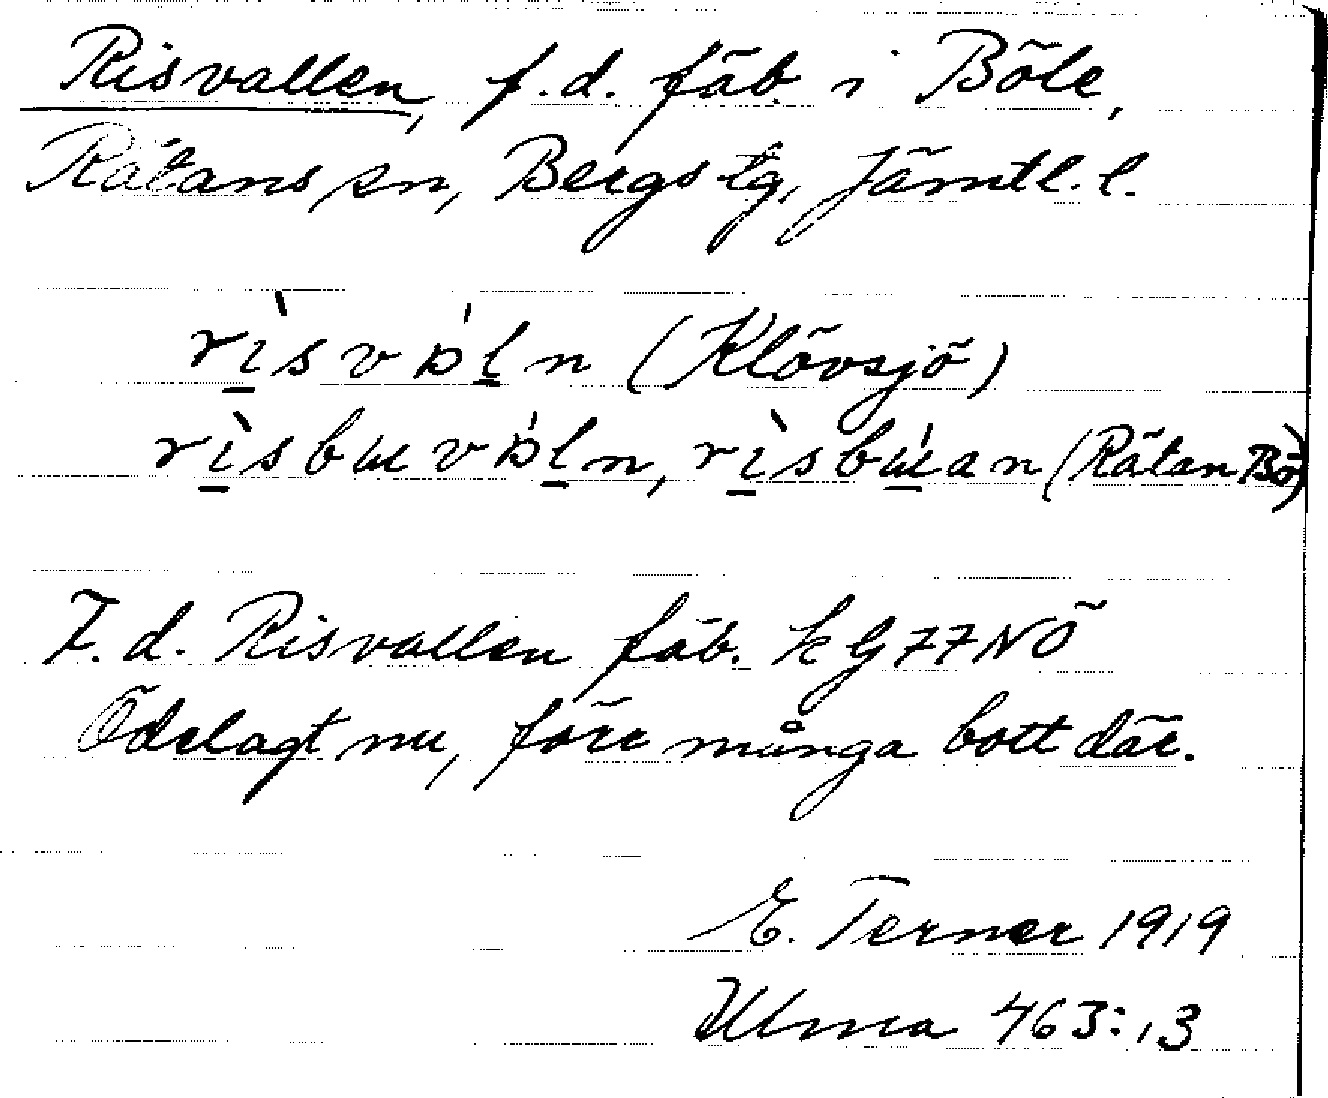 Risvallen, f.d. fäb. i Böle,
Rätans sn, Bergs tg, Jämtl. l.
rìsvòln (Klövsjö)
rìsbɯvòln, rìsbɯ́an (Rätan Bö)
F.d. Risvallen fäb. k G 77 NÖ
Ödelagt nu, före många bott där.
E. Terner 1919
Ulma 463:13